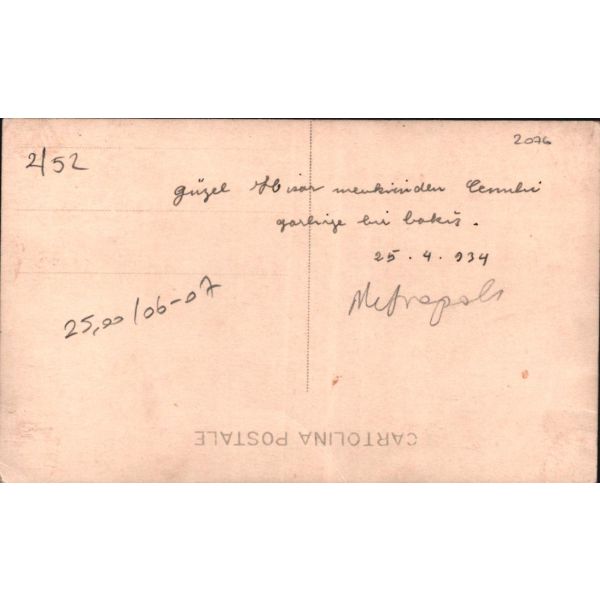 2076
2/52
Güzel Hisar mevkiinden Cenubi
garbiye bir bakış.
25.4.934
25,00/06-07
Metropols
CARTOLINA POSTALE